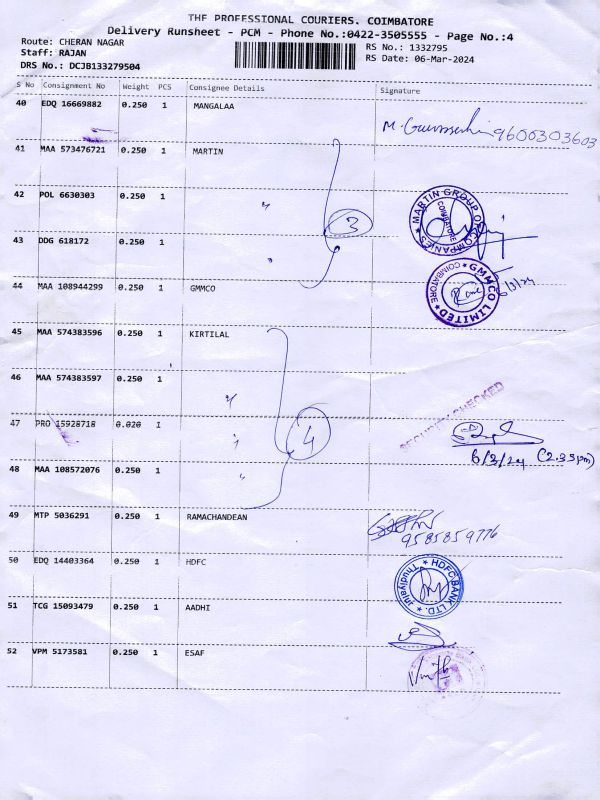 THE PROFESSIONAL COURIERS. COIMBATORE
Delivery Runsheet - PCM - Phone No.:0422-3505555 - Page No.:4
Route: CHERAN NAGAR
RS No.: 1332795
Staff: RAJAN
RS Date: 06-Mar-2024
DRS No.: DCJB133279504
S No Consignment No Weight PCS Consignee Details Signature
40 EDQ 16669882 0.250 1 MANGALAA
9600303603
41 MAA 573476721 0.250 1 MARTIN
42 POL 6630303 0.250 1 〃
3
MARTIN GROUP OF COMPANIES * COIMBATORE
43 DDG 618172 0.250 1 〃
44 MAA 108944299 0.250 1 GMMCO
GMMCO LIMITED * COIMBATORE *
6/3/24
45 MAA 574383596 0.250 1 KIRTILAL
46 MAA 574383597 0.250 1 〃
SECURITY CHECKED
47 PRO 15928718 0.020 1 〃
4
6/3/24 (2.35pm)
48 MAA 108572076 0.250 1 〃
49 MTP 5036291 0.250 1 RAMACHANDEAN
9585859776
50 EDQ 14403364 0.250 1 HDFC
HDFC BANK LTD. * Thudiyalur *
51 TCG 15093479 0.250 1 AADHI
52 VPM 5173581 0.250 1 ESAF